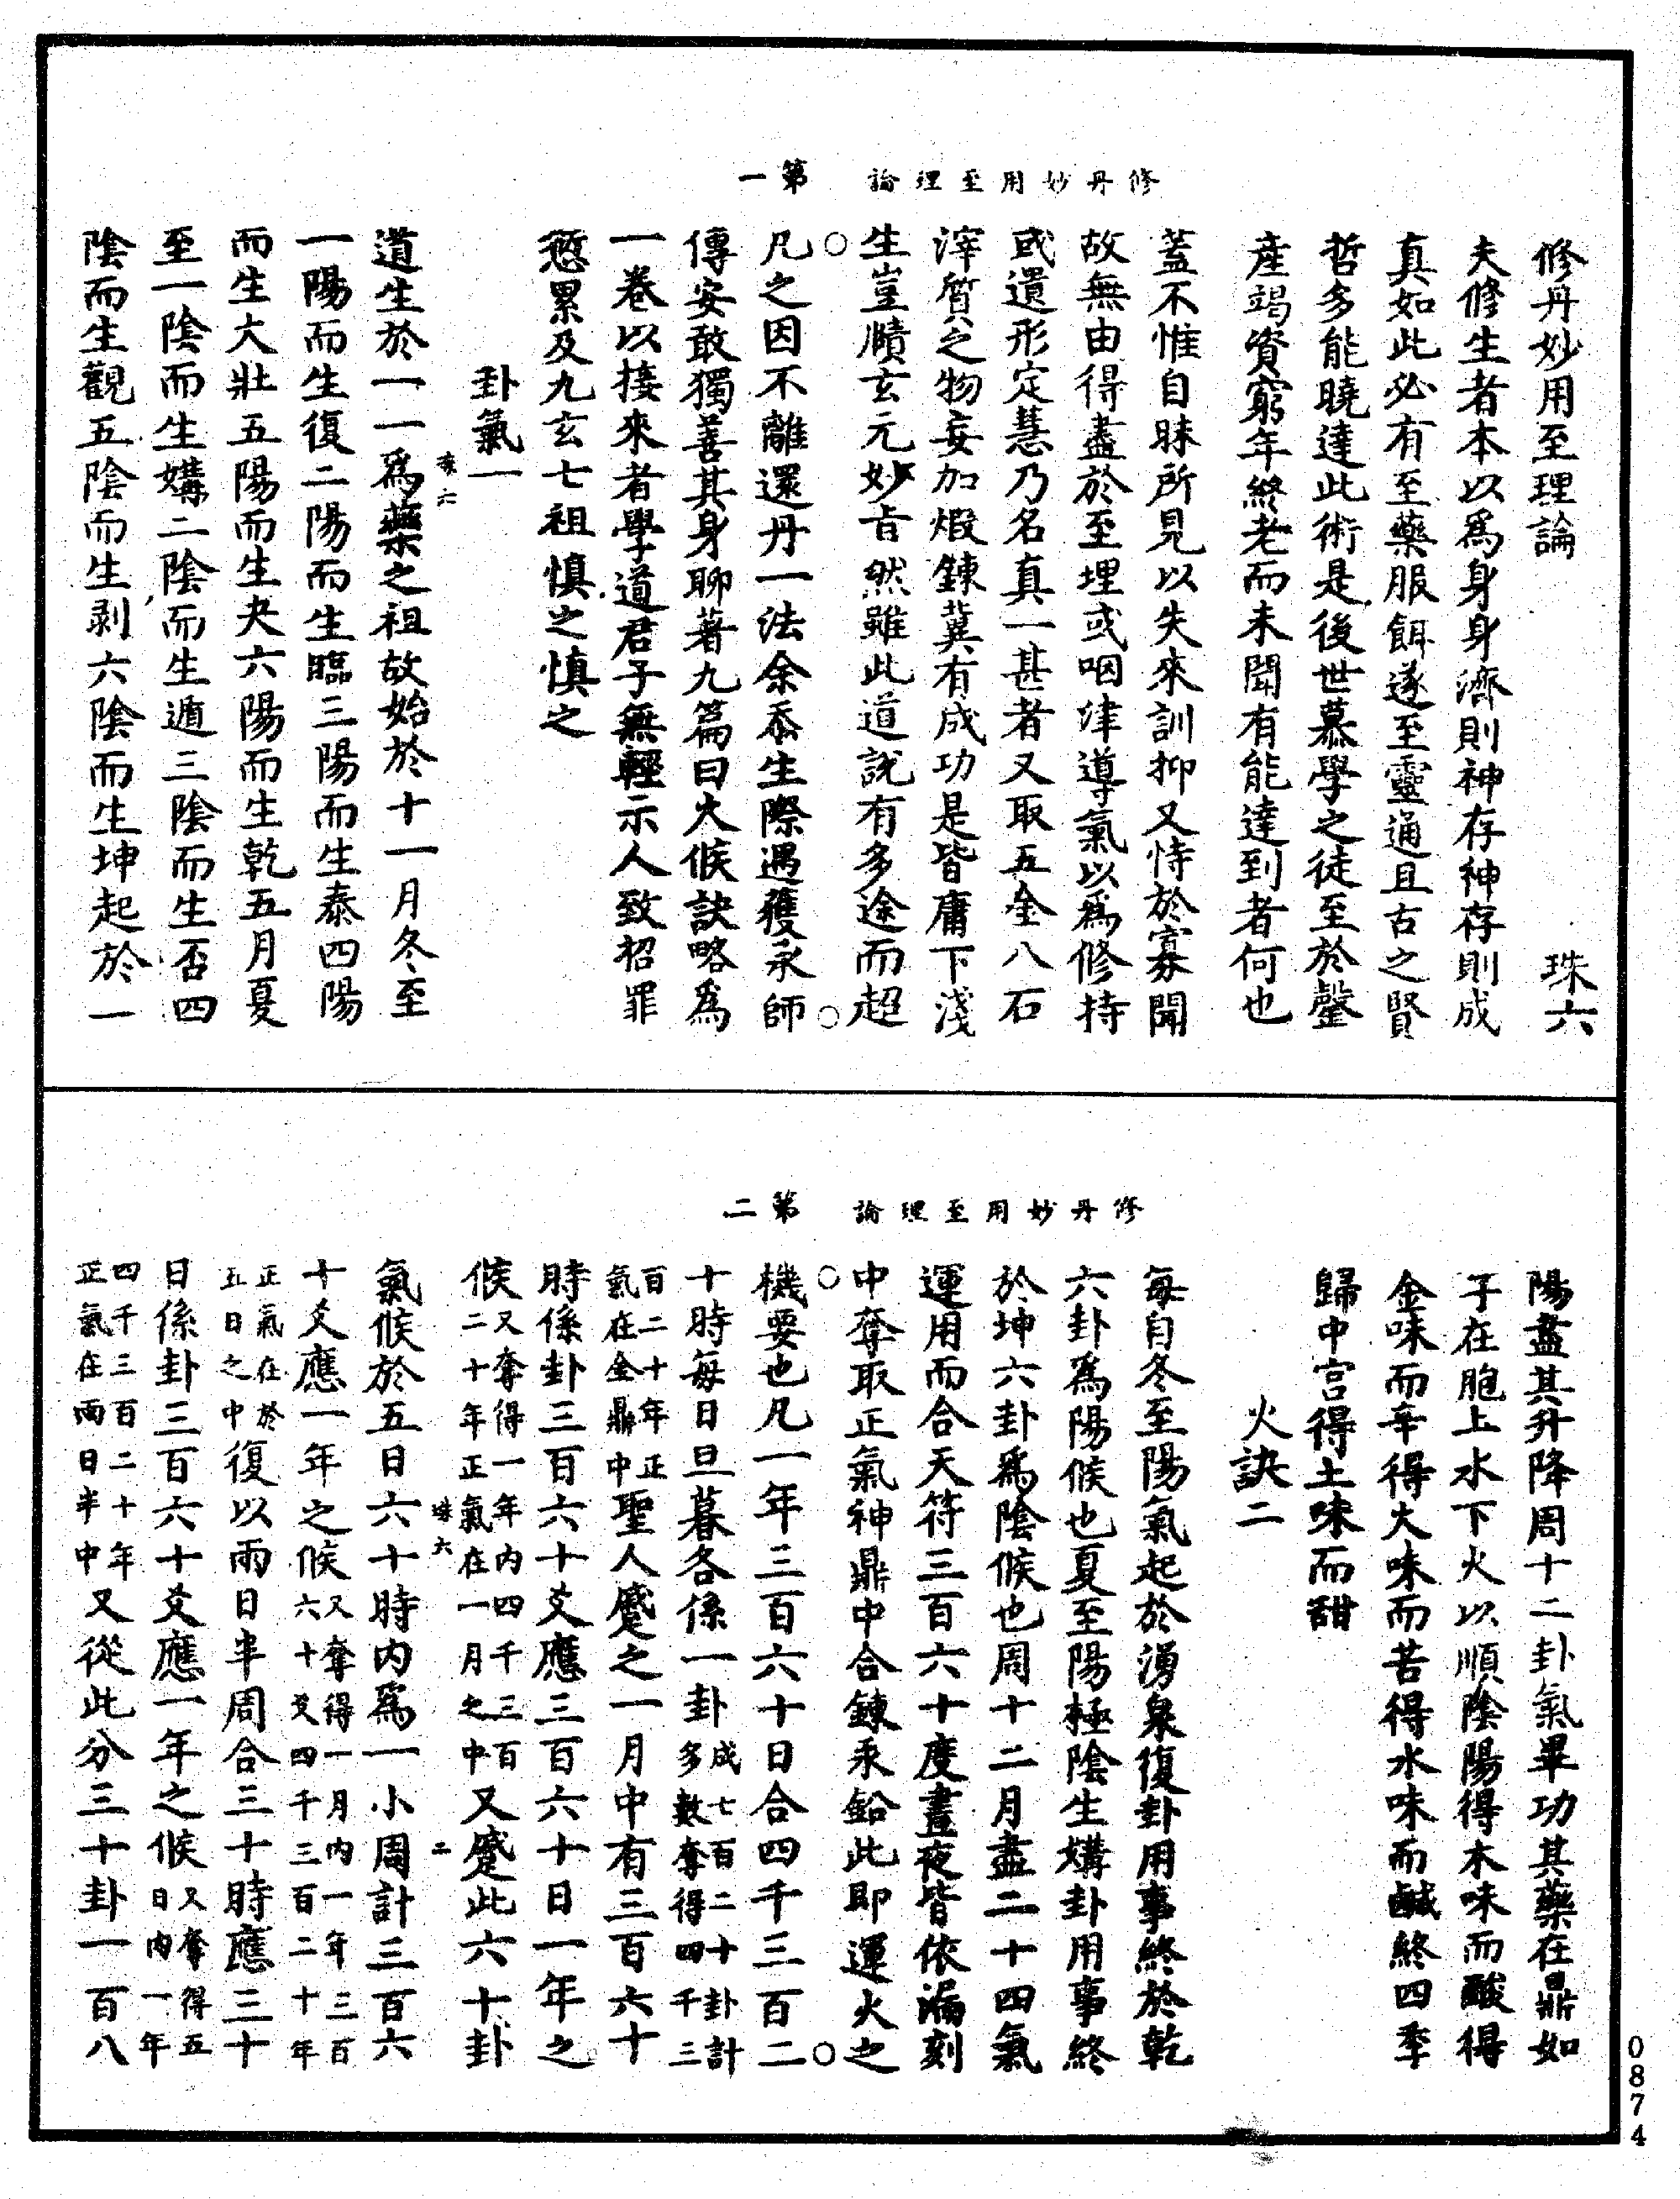 修丹妙用至理論 第一
修丹妙用至理論 珠六
夫修生者本以爲身身濟則神存神存則成
真如此必有至藥服餌遂至靈通且古之賢
哲多能曉達此術是後世慕學之徒至於罄
產竭資窮年終老而未聞有能達到者何也
蓋不惟自昧所見以失來訓抑又恃於寡聞
故無由得盡於至理或咽津導氣以爲修持
或遺形定慧乃名真一甚者又取五金八石
滓質之物妄加煆鍊冀有成功是皆庸下淺
生豈賾玄元妙旨然雖此道說有多途而超
凡之因不離還丹一法余忝生際遇獲承師
傳安敢獨善其身聊著九篇曰火候訣略爲
一卷以接來者學道君子無輕示人致招罪
愆累及九玄七祖慎之慎之
卦氣一
珠六
道生於一一爲藥之祖故始於十一月冬至
一陽而生復二陽而生臨三陽而生泰四陽
而生大壯五陽而生夬六陽而生乾五月夏
至一陰而生媾二陰而生遁三陰而生否四
陰而生觀五陰而生剥六陰而生坤起於一
修丹妙用至理論 第二
陽盡其升降周十二卦氣畢功其藥在鼎如
子在胞上水下火以順陰陽得木味而酸得
金味而辛得火味而苦得水味而鹹終四季
歸中宫得土味而甜
火訣二
每自冬至陽氣起於湧泉復卦用事終於乾
六卦爲陽候也夏至陽極陰生媾卦用事終
於坤六卦爲陰候也周十二月盡二十四氣
運用而合天符三百六十度晝夜皆依漏刻
中奪取正氣神鼎中合鍊汞鉛此即運火之
機要也凡一年三百六十日合四千三百二
十時每日旦暮各係一卦成七百二十卦計多數奪得四千三
百二十年正氣在金鼎中聖人蹙之一月中有三百六十
時係卦三百六十爻應三百六十日一年之
候又奪得一年内四千三百二十年正氣在一月之中又蹙此六十卦
珠六 二
氣候於五日六十時内爲一小周計三百六
十爻應一年之候又奪得一月内一年三百六十爻四千三百二十年
正氣在於五日之中復以兩日半周合三十時應三十
日係卦三百六十爻應一年之候又奪得五日内一年
四千三百二十年正氣在兩日半中又從此分三十卦一百八
0874